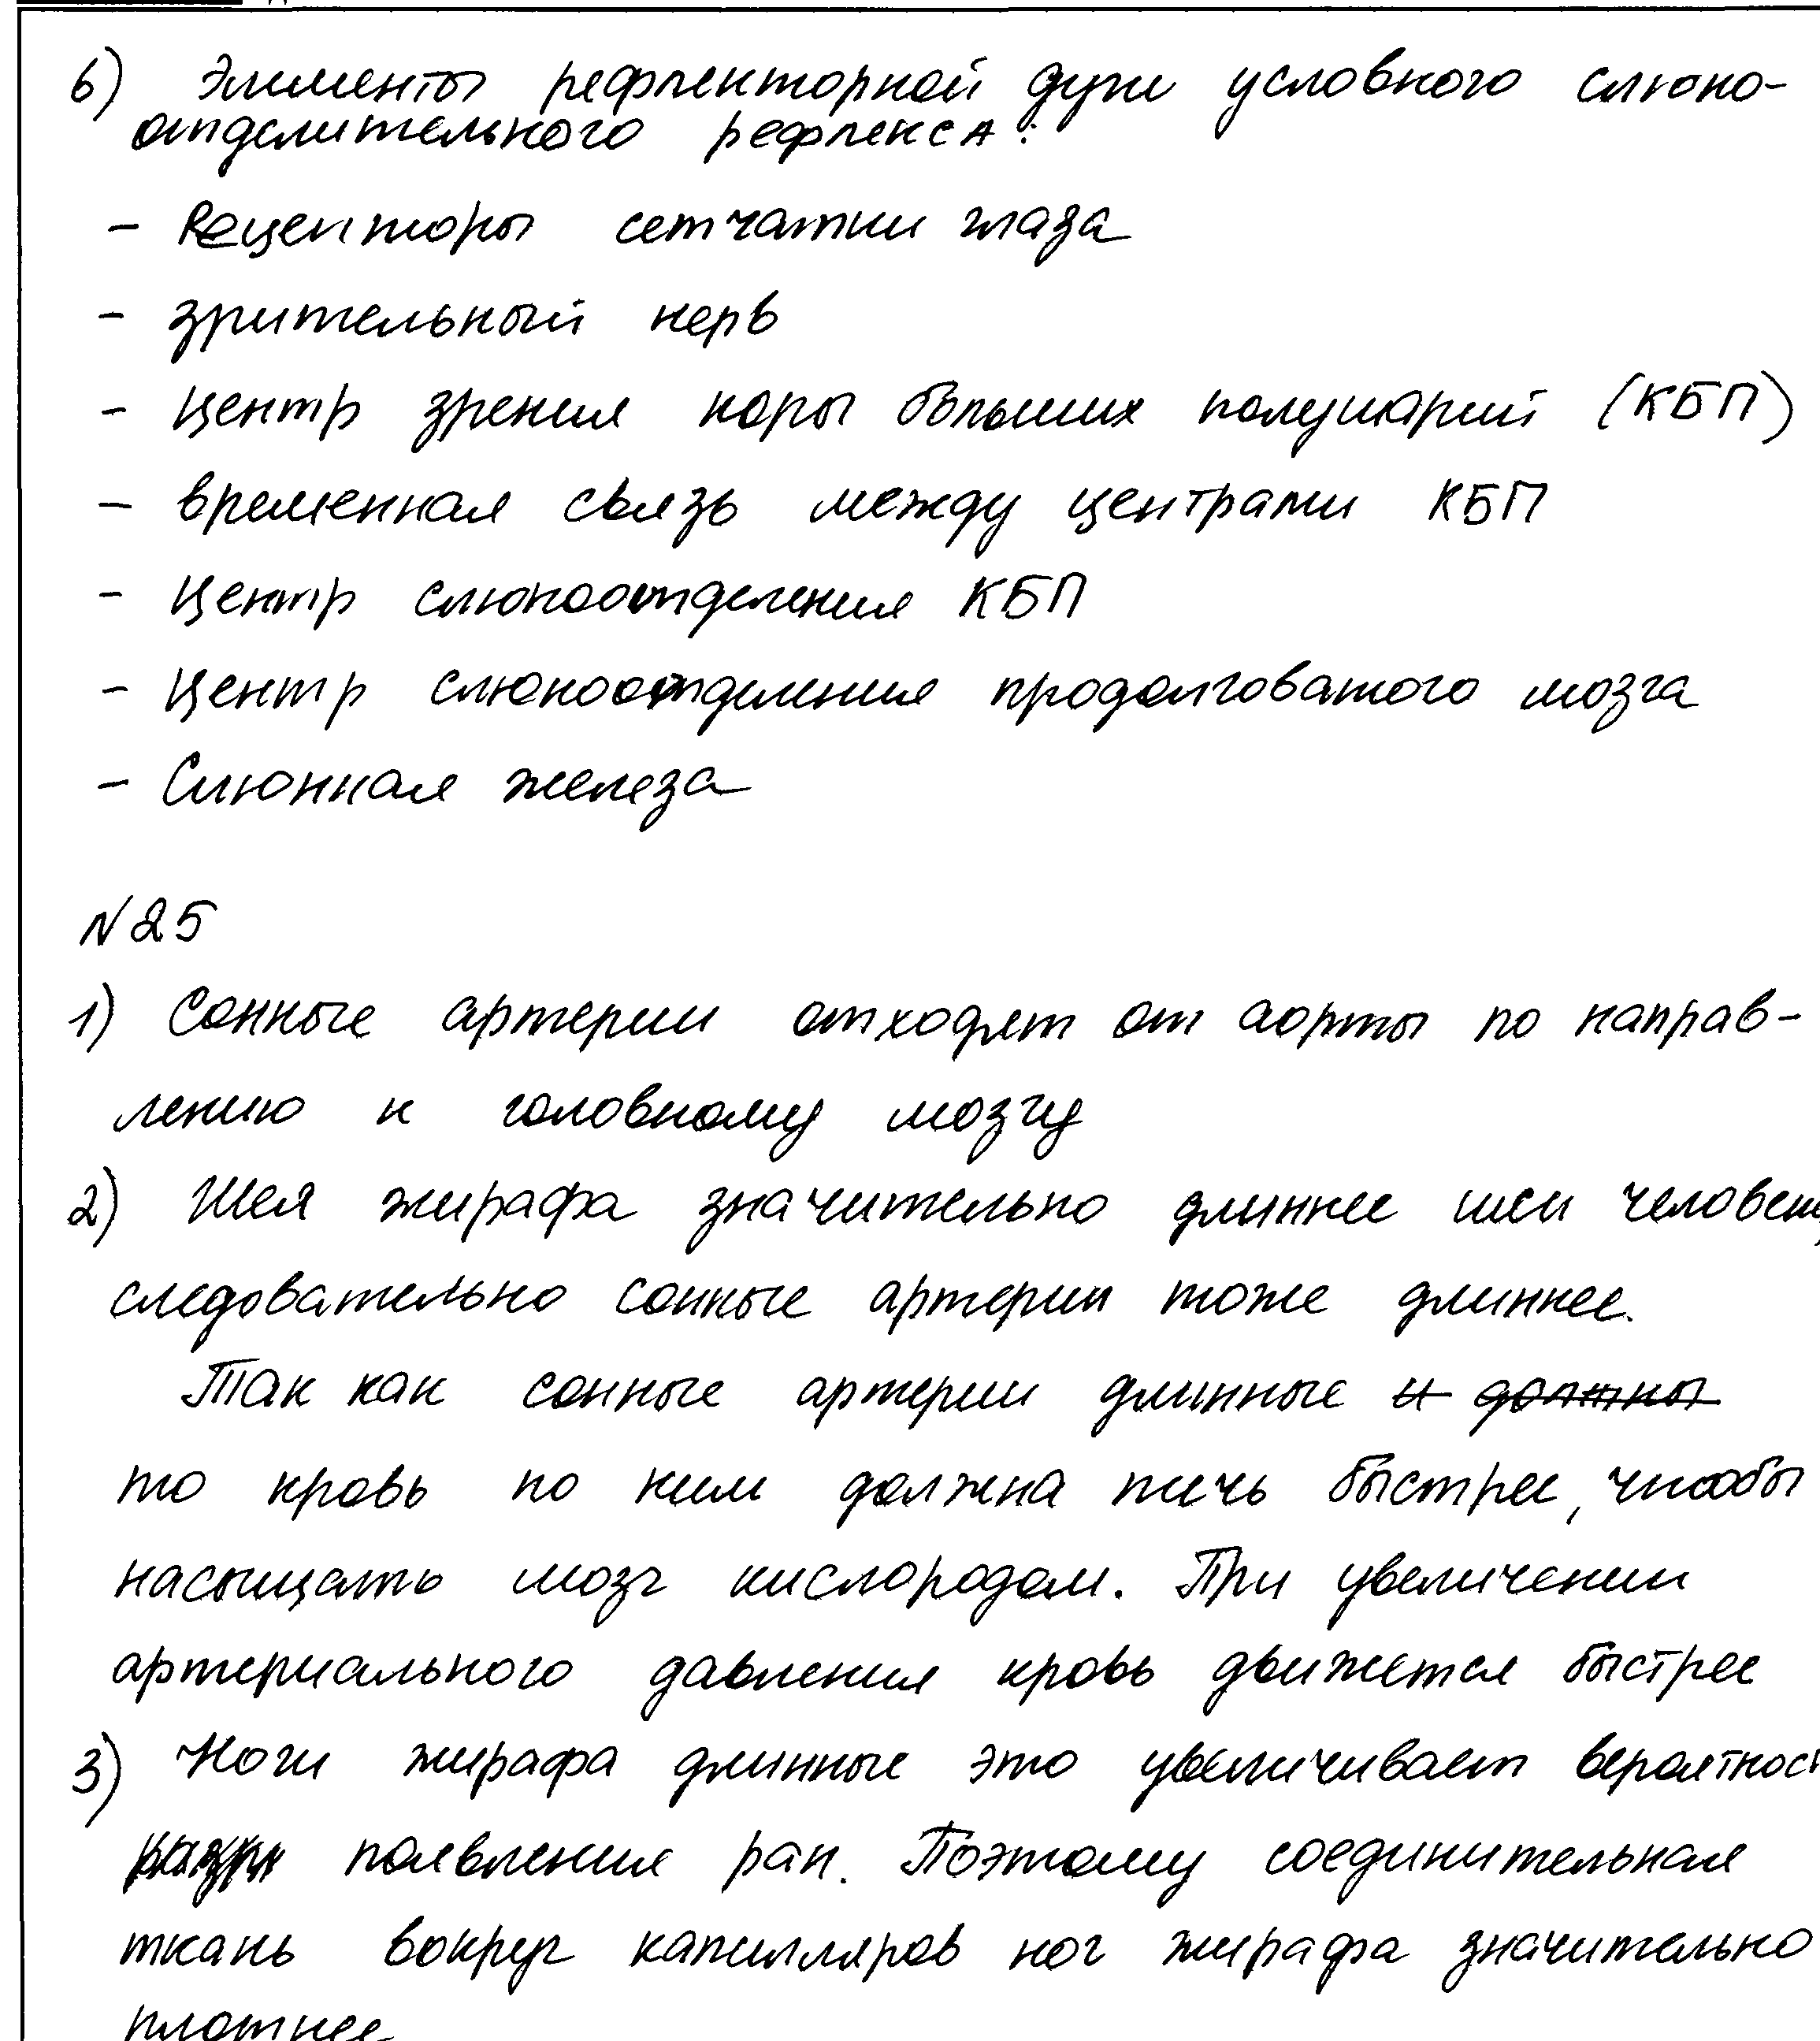 6) Элименты рефлекторной дуги условного слюно-
отделительного рефлекса:
- Рецепторы сетчатки глаза
- зрительный нерв
- Центр зрения коры больших полушарий (КБП)
- временная связь между центрами КБП
- Центр слюноотделения КБП
- Центр слюноотделения продолговатого мозга
- Слюнная железа
N25
1) Сонные артерии отходят от аорты по направ-
лению к головному мозгу
2) Шея жирафа значительно длиннее шеи человека,
следовательно сонные артерии тоже длиннее.
Так как сонные артерии длинные и должны
то кровь по ним должна течь быстрее, чтобы
насыщать мозг кислородом. При увеличении
артериального давления кровь движется быстрее
3) Ноги жирафа длинные это увеличивает вероятность
появления ран. Поэтому соединительная
ткань вокруг капилляров ног жирафа значительно
плотнее